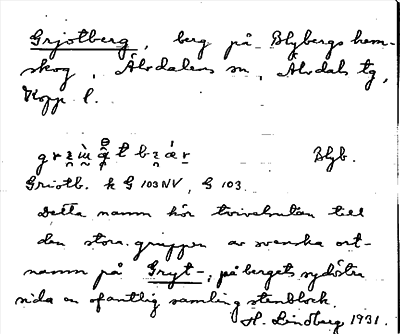 Grjotberg, berg på Blybergs hem-
skog, Älvdalens sn, Älvdals tg,
Kopp. l.
Blyb.
Griotb. k G 103 NV, G 103.
Detta namn hör tvivelsutan till
den stora gruppen av svenska ort-
namn på Gryt-, på bergets sydöstra
sida en ofantlig samling stenblock.
H. Lindberg 1931.